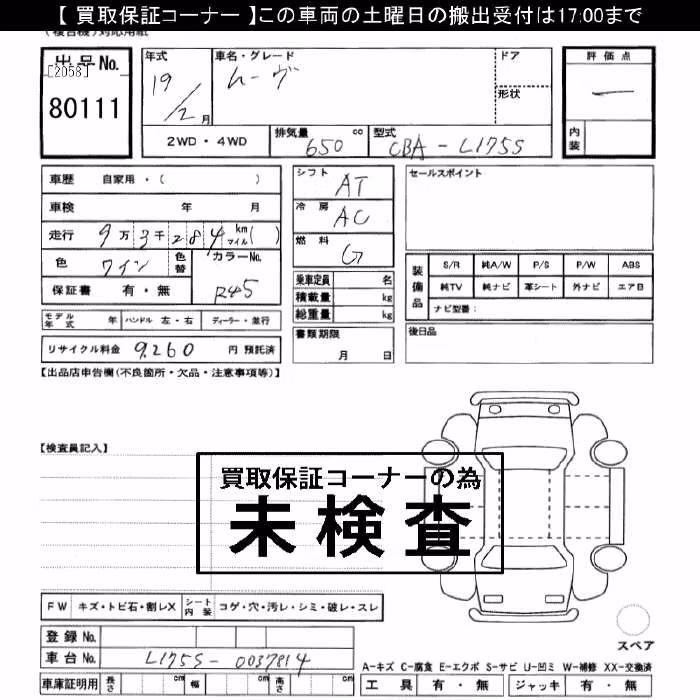 【 買取保証コーナー 】この車両の土曜日の搬出受付は17:00まで
出品No.
[2058]
80111
年式
19/2月
車名・グレード
ムーヴ
ドア
形状
2WD・4WD
排気量 650 cc
型式 CBA-L175S
評価点
ー
内装
車歴 自家用・( )
車検 年 月
走行 9万3千284 km マイル( )
色 ワイン
色替
カラーNo. R45
保証書 有・無
シフト AT
冷房 AC
燃料 G
乗車定員 名
積載量 kg
総重量 kg
書類期限 月 日
セールスポイント
装備品
S/R 純A/W P/S P/W ABS
純TV 純ナビ 革シート 外ナビ エアB
ナビ型番:
後日品
モデル年式 年 ハンドル 左・右 ディーラー・並行
リサイクル料金 9,260 円 預託済
【出品店申告欄(不良箇所・欠品・注意事項等)】
【検査員記入】
買取保証コーナーの為
未検査
FW キズ・トビ石・割レX シート内装 コゲ・穴・汚レ・シミ・破レ・スレ
登録No.
車台No. L175S-0037814
車庫証明用 長さ cm 幅 cm 高さ cm
スペア
A-キズ C-腐食 E-エクボ S-サビ U-凹ミ W-補修 XX-交換済
工具 有・無 ジャッキ 有・無